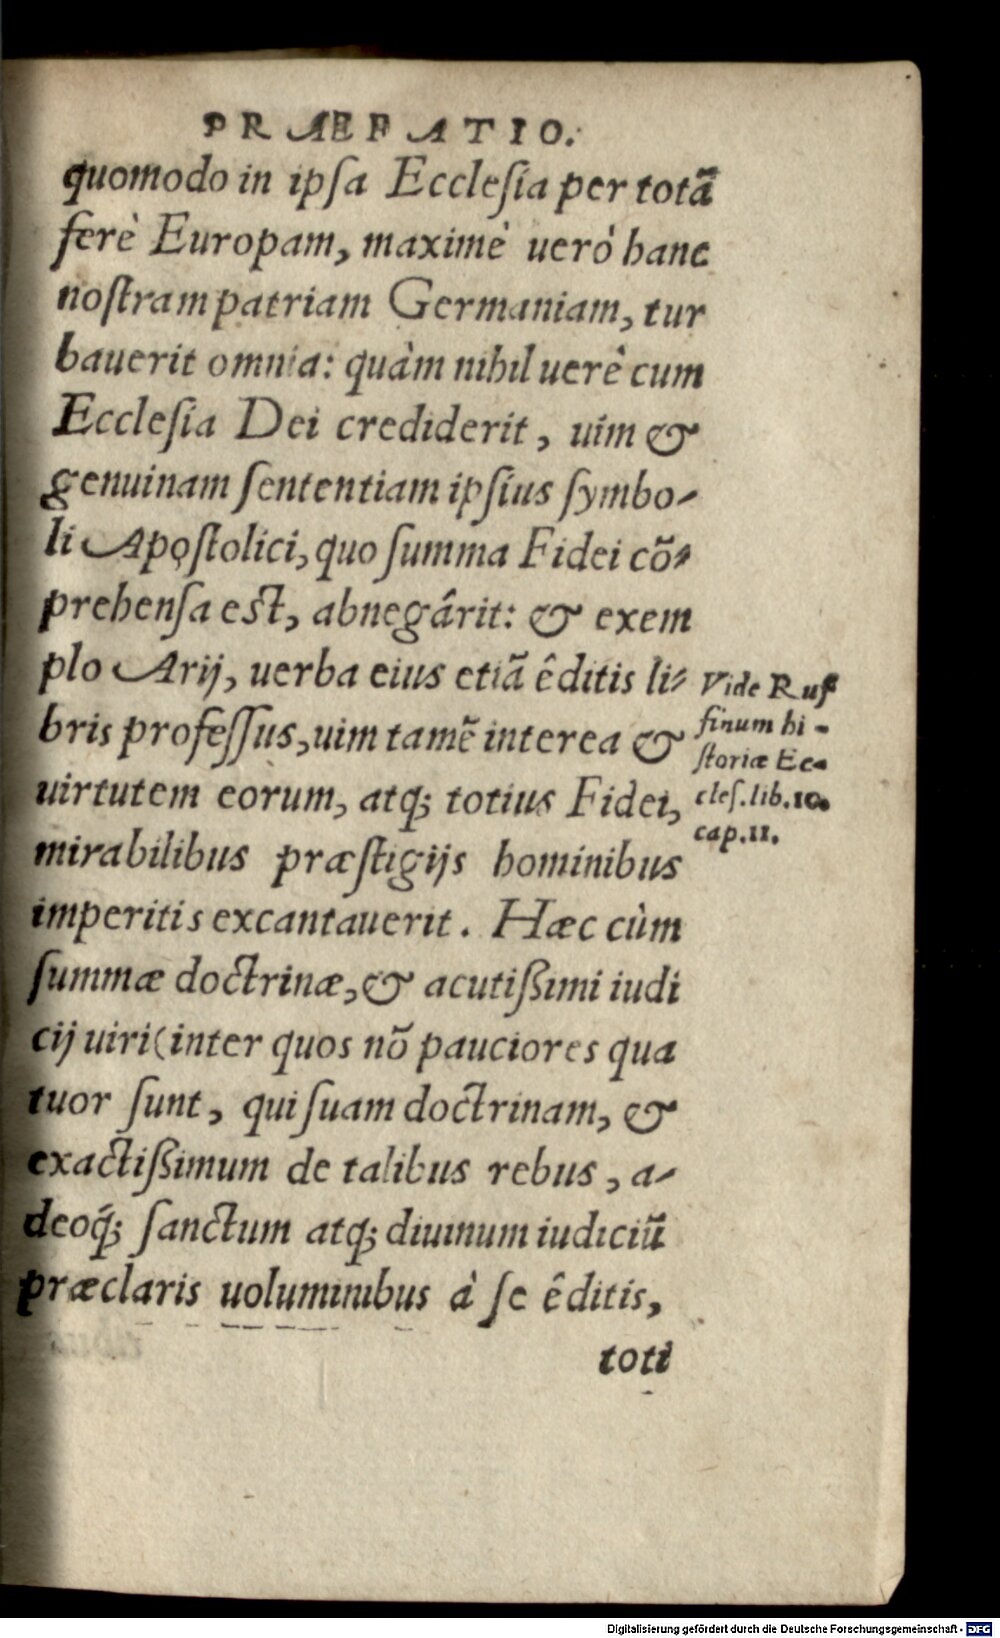 PRÆFATIO.
quomodo in ipsa Ecclesia per totã
ferè Europam, maximè uerò hanc
nostram patriam Germaniam, tur
bauerit omnia: quàm nihil uerê cum
Ecclesia Dei crediderit, uim &
genuinam sententiam ipsius symbo-
li Apostolici, quo summa Fidei cõ-
prehensa est, abnegârit: & exem
plo Arij, uerba eius etiã êditis li-
bris professus, uim tamẽ interea &
uirtutem eorum, atq; totius Fidei,
mirabilibus præstigijs hominibus
imperitis excantauerit. Hæc cùm
summæ doctrinæ, & acutißimi iudi
cij uiri (inter quos nõ pauciores qua
tuor sunt, qui suam doctrinam, &
exactißimum de talibus rebus, a-
deoq́; sanctum atq; diuinum iudiciũ
præclaris uoluminibus à se êditis,
toti
Vide Ruf
finum hi-
storiæ Ec-
cles. lib. 10.
cap. 11.
Digitalisierung gefördert durch die Deutsche Forschungsgemeinschaft - DFG